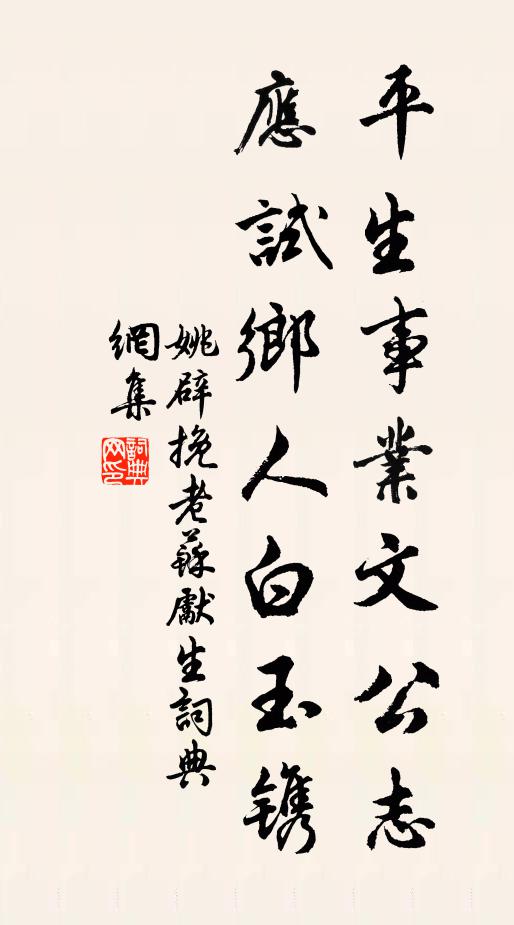 平生事業文公志
應試鄉人白玉鐫
姚辟挽老蘇獻生詞典
網集
詞典網印